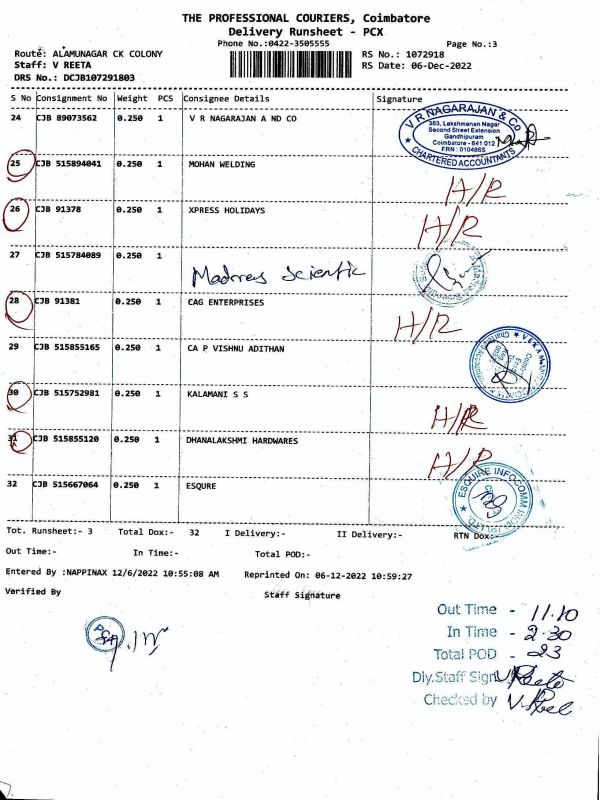 THE PROFESSIONAL COURIERS, Coimbatore
Delivery Runsheet - PCX
Phone No.:0422-3505555
Page No.:3
Route: ALAMUNAGAR CK COLONY
RS No.: 1072918
Staff: V REETA
RS Date: 06-Dec-2022
DRS No.: DCJB107291803
S No Consignment No Weight PCS Consignee Details Signature
24 CJB 89073562 0.250 1 V R NAGARAJAN A ND CO
V R NAGARAJAN & CO
383, Lakshmanan Nagar
Second Street Extension
Gandhipuram
Coimbatore - 641 012
FRN : 010486S
CHARTERED ACCOUNTANTS
25 CJB 515894041 0.250 1 MOHAN WELDING
H/R
26 CJB 91378 0.250 1 XPRESS HOLIDAYS
H/R
27 CJB 515784089 0.250 1
Madras Scientific
28 CJB 91381 0.250 1 CAG ENTERPRISES
H/R
29 CJB 515855165 0.250 1 CA P VISHNU ADITHAN
30 CJB 515752981 0.250 1 KALAMANI S S
H/R
31 CJB 515855120 0.250 1 DHANALAKSHMI HARDWARES
H/R
32 CJB 515667064 0.250 1 ESQURE
ESQUIRE INFOCOMM
Tot. Runsheet:- 3 Total Dox:- 32 I Delivery:- II Delivery:- RTN Dox:-
Out Time:- In Time:- Total POD:-
Entered By :NAPPINAX 12/6/2022 10:55:08 AM Reprinted On: 06-12-2022 10:59:27
Verified By Staff Signature
Out Time - 11.10
In Time - 2.30
Total POD - 23
Dly.Staff Sign V Reeta
Checked by